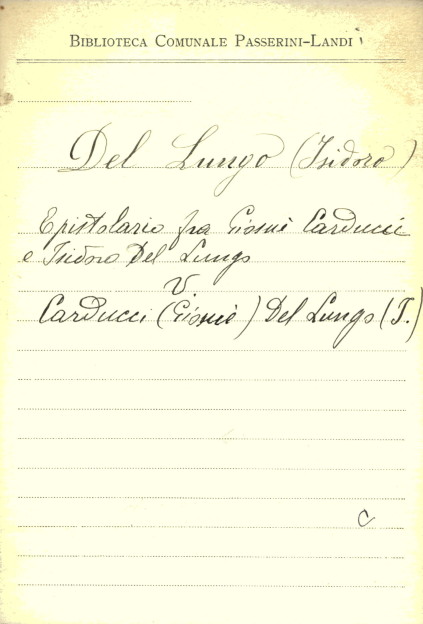 BIBLIOTECA COMUNALE PASSERINI-LANDI
Del Lungo (Isidoro)
Epistolario fra Giosuè Carducci
e Isidoro Del Lungo
V.
Carducci (Giosuè) Del Lungo (I.)
C